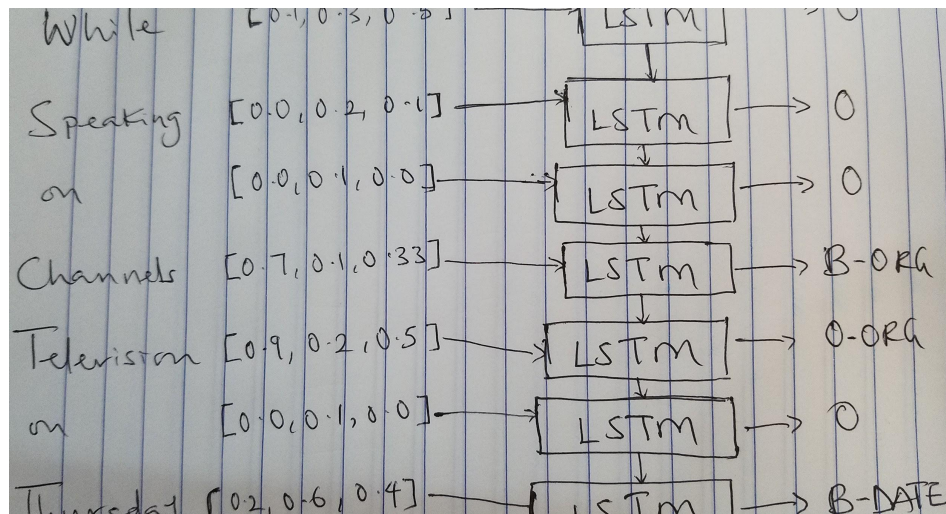 While [0.1, 0.3, 0.5] LSTM O
Speaking [0.0, 0.2, 0.1] LSTM O
on [0.0, 0.1, 0.0] LSTM O
Channels [0.7, 0.1, 0.33] LSTM B-ORG
Television [0.9, 0.2, 0.5] LSTM O-ORG
on [0.0, 0.1, 0.0] LSTM O
Thursday [0.2, 0.6, 0.4] LSTM B-DATE